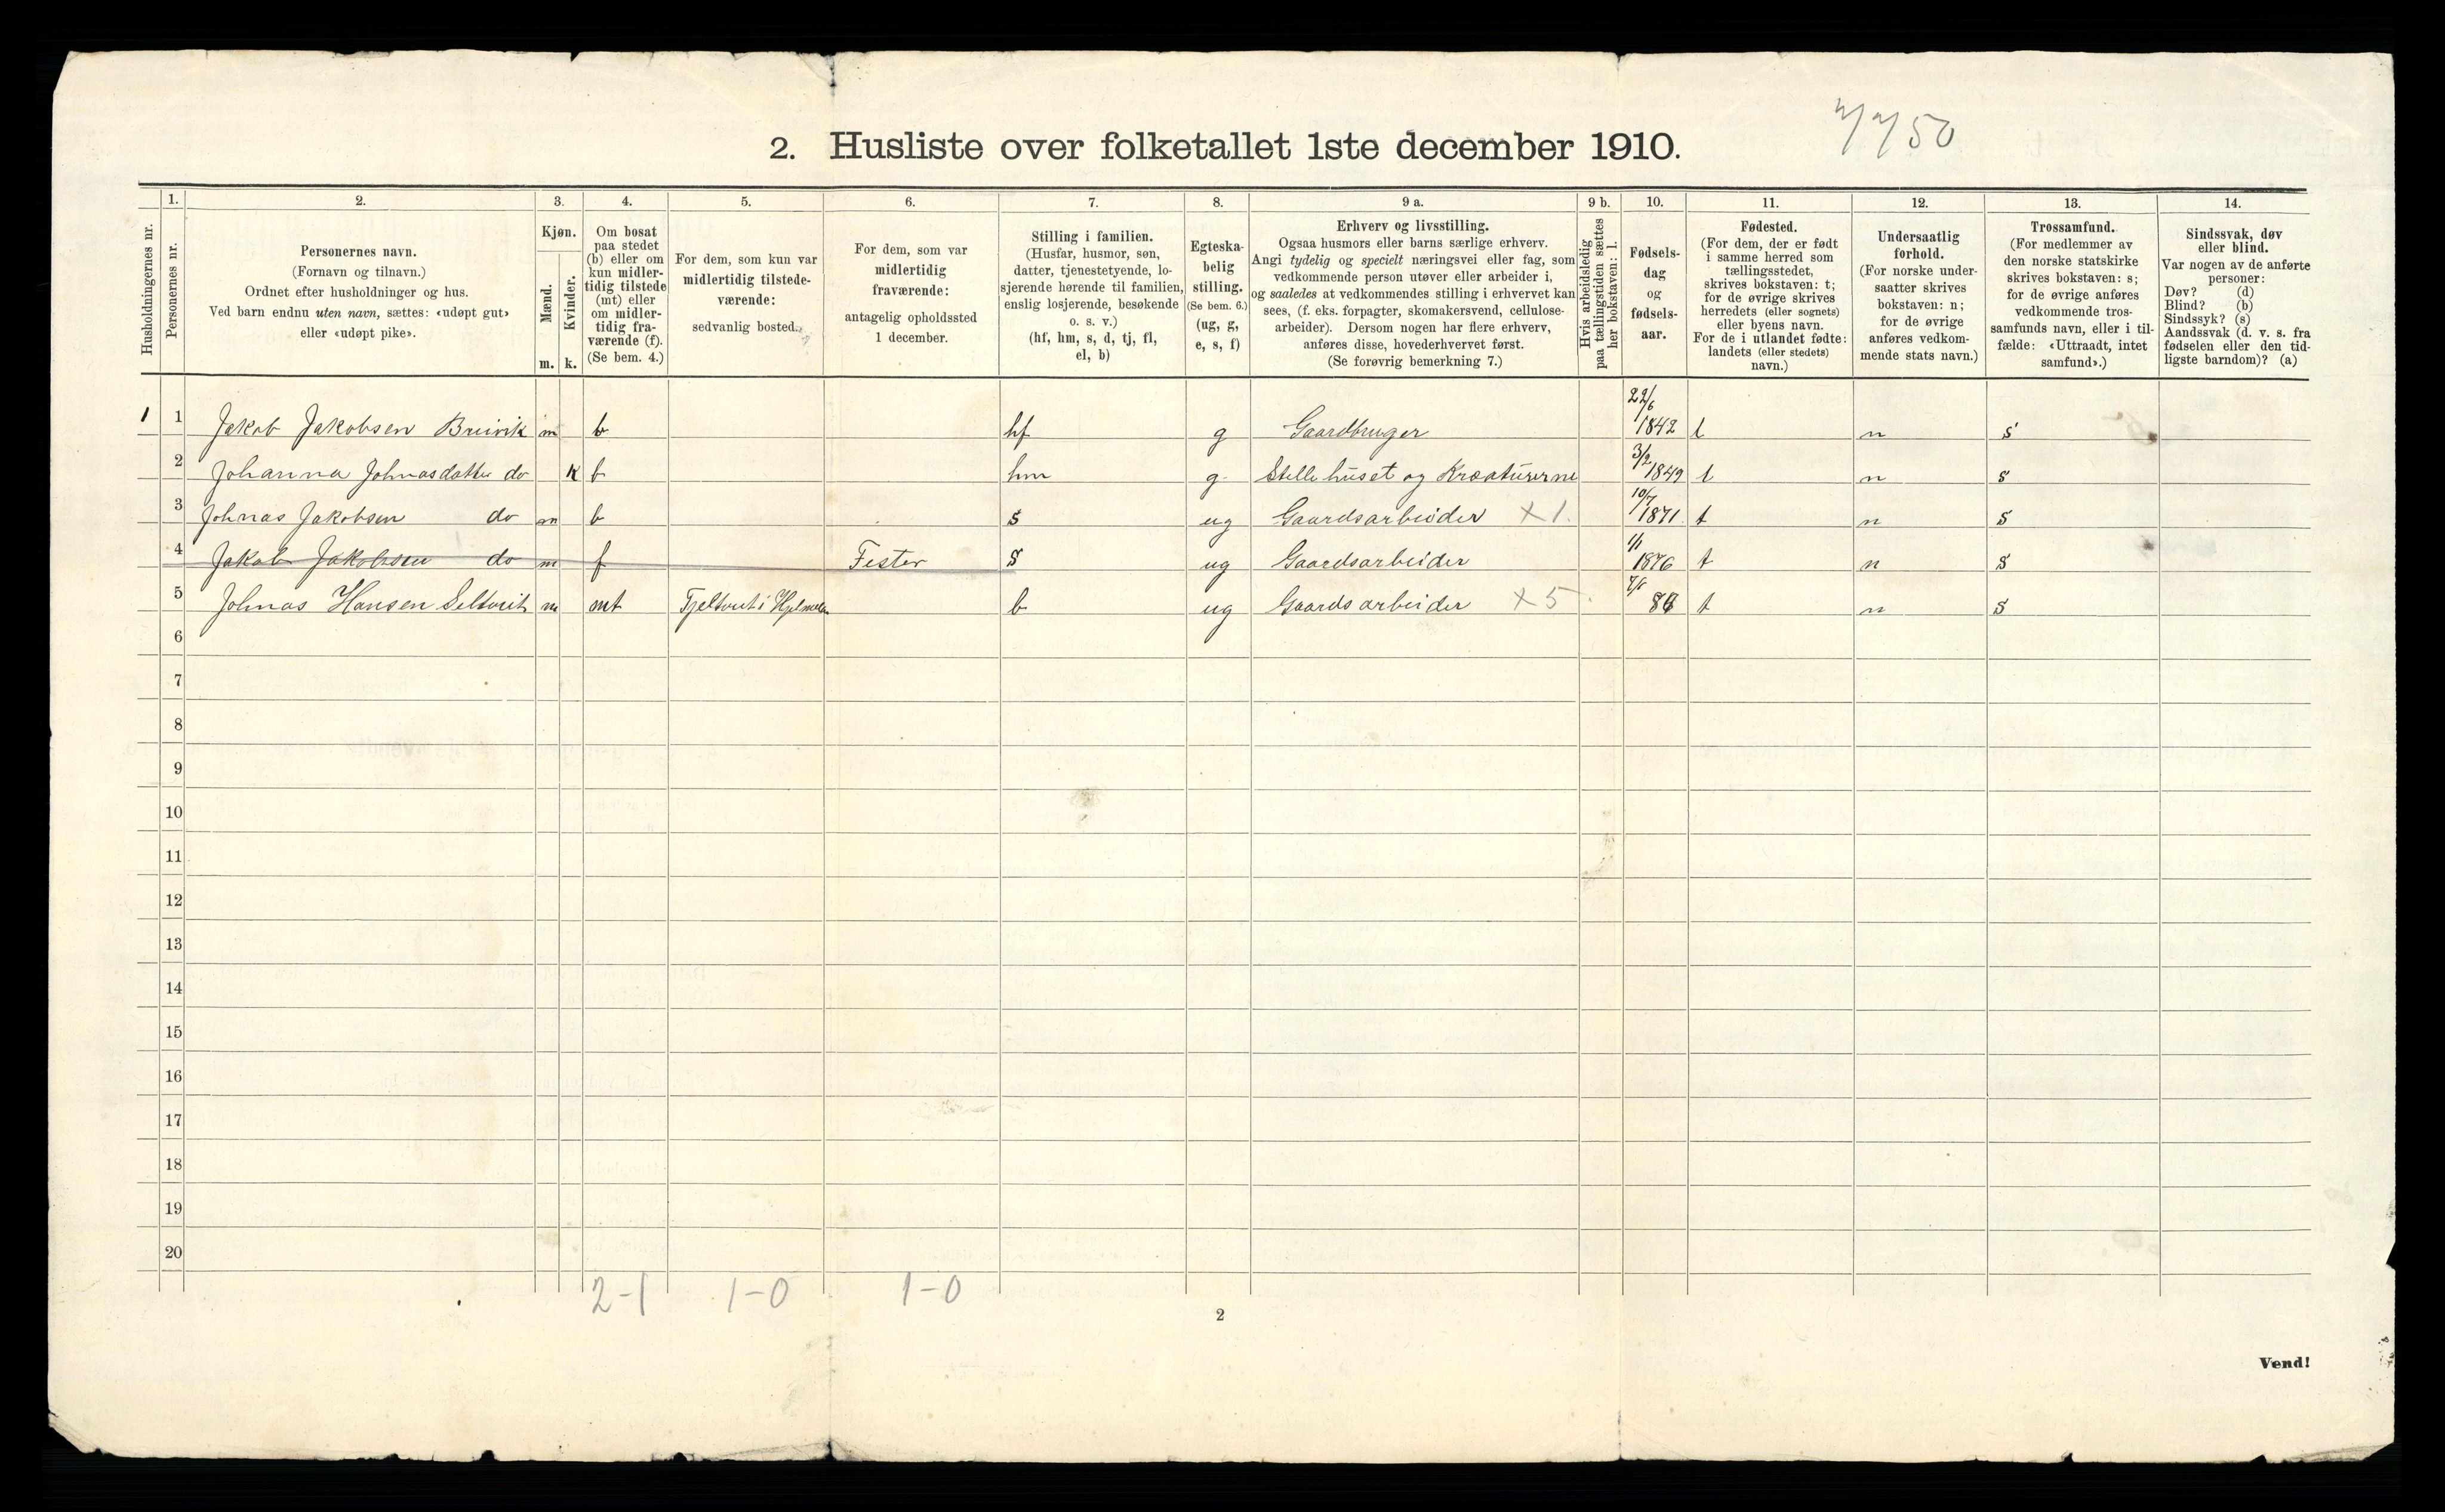 7/7 50
2. Husliste over folketallet 1ste december 1910.
Husholdningernes nr.
1.
Personernes nr.
2.
Personernes navn.
(Fornavn og tilnavn.)
Ordnet efter husholdninger og hus.
Ved barn endnu uten navn, sættes: «udøpt gut»
eller «udøpt pike».
3.
Kjøn.
Mænd.
m.
Kvinder.
k.
4.
Om bosat
paa stedet
(b) eller om
kun midler-
tidig tilstede
(mt) eller
om midler-
tidig fra-
værende (f).
(Se bem. 4.)
5.
For dem, som kun var
midlertidig tilstede-
værende:
sedvanlig bosted.
6.
For dem, som var
midlertidig
fraværende:
antagelig opholdssted
1 december.
7.
Stilling i familien.
(Husfar, husmor, søn,
datter, tjenestetyende, lo-
sjerende hørende til familien,
enslig losjerende, besøkende
o. s. v.)
(hf, hm, s, d, tj, fl,
el, b)
8.
Egteska-
belig
stilling.
(Se bem. 6.)
(ug, g,
e, s, f)
9 a.
Erhverv og livsstilling.
Ogsaa husmors eller barns særlige erhverv.
Angi tydelig og specielt næringsvei eller fag, som
vedkommende person utøver eller arbeider i,
og saaledes at vedkommendes stilling i erhvervet kan
sees, (f. eks. forpagter, skomakersvend, cellulose-
arbeider). Dersom nogen har flere erhverv,
anføres disse, hovederhvervet først.
(Se forøvrig bemerkning 7.)
9 b.
Hvis arbeidsledig
paa tællingstiden sættes
her bokstaven: l.
10.
Fødsels-
dag
og
fødsels-
aar.
11.
Fødested.
(For dem, der er født
i samme herred som
tællingsstedet,
skrives bokstaven: t;
for de øvrige skrives
herredets (eller sognets)
eller byens navn.
For de i utlandet fødte:
landets (eller stedets)
navn.)
12.
Undersaatlig
forhold.
(For norske under-
saatter skrives
bokstaven: n;
for de øvrige
anføres vedkom-
mende stats navn.)
13.
Trossamfund.
(For medlemmer av
den norske statskirke
skrives bokstaven: s;
for de øvrige anføres
vedkommende tros-
samfunds navn, eller i til-
fælde: «Uttraadt, intet
samfund».)
14.
Sindssvak, døv
eller blind.
Var nogen av de anførte
personer:
Døv? (d)
Blind? (b)
Sindssyk? (s)
Aandssvak (d. v. s. fra
fødselen eller den tid-
ligste barndom)? (a)
1 1 Jakob Jakobsen Bruvik m b hf g Gaardbruger 22/6 1842 t n s
2 Johanna Johnasdatter do k b hm g Stelle huset og Kreaturerne 3/2 1849 t n s
3 Johnas Jakobsen do m b s ug Gaardsarbeider X 1. 10/7 1871 t n s
4 Jakob Jakobsen do m f Fister s ug Gaardsarbeider 1/1 1876 t n s
5 Johnas Hansen m mt b ug Gaardsarbeider X 5. t n s
6
7
8
9
10
11
12
13
14
15
16
17
18
19
20
2-1 1-0 1-0
2
Vend!